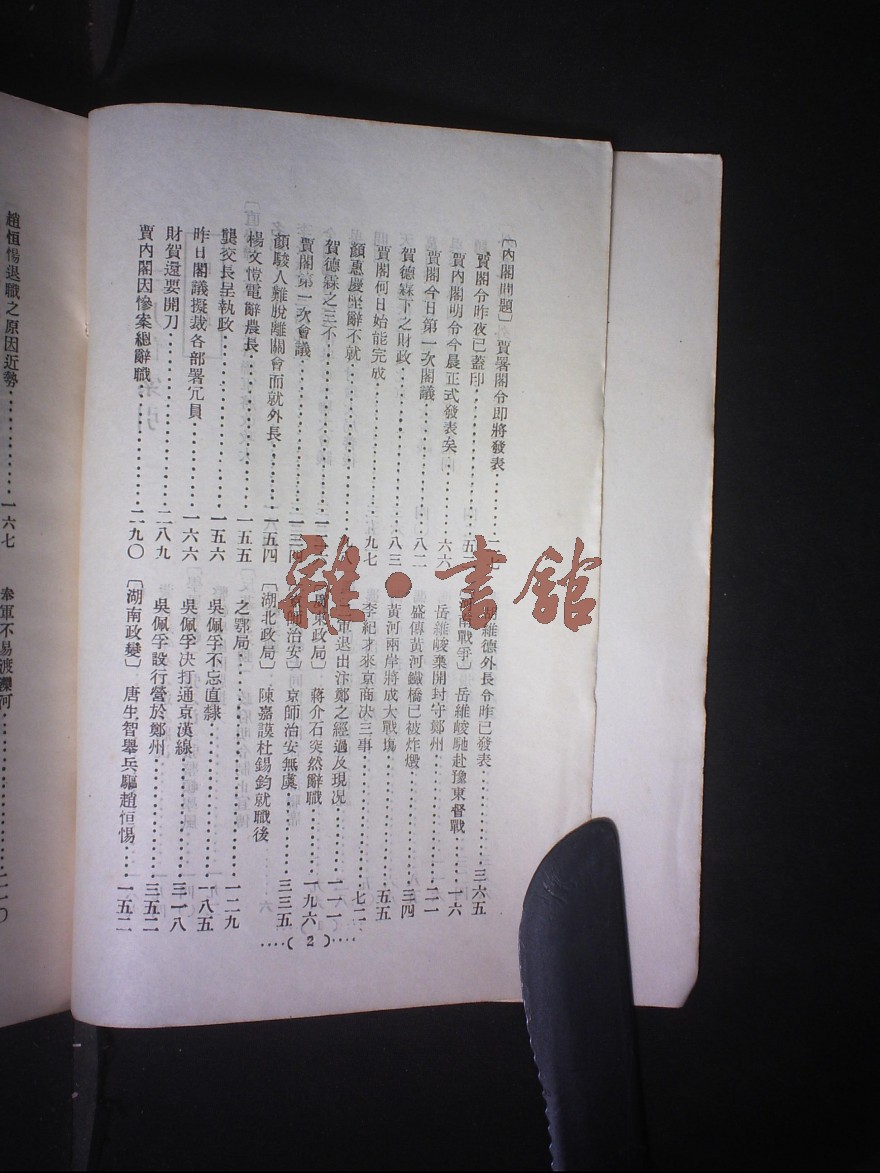 〔內閣問題〕 賈署閣令即將發表
賈閣令昨夜已蓋印
賈內閣明令今晨正式發表矣 六六
賈閣今日第一次閣議 八二
賀德霖下之財政 八三
賈閣何日始能完成 九七
顏惠慶堅辭不就
賀德霖之三不
賈閣第一次會議
顏駿人難脫離關會而就外長 一五四
楊文愷電辭農長 一五五
龔校長呈執政 一五六
昨日閣議擬裁各部署冗員 一六六
財賀還要開刀 二八九
賈內閣因慘案總辭職 二九〇
胡維德外長令昨已發表 三六五
岳維峻馳赴豫東督戰 一六
岳維峻棄開封守鄭州 二一
盛傳黃河鐵橋已被炸燬 三四
黃河兩岸將成大戰場 五五
李紀才來京商決三事 七二
軍退出汴鄭之經過及現况 一一一
廣東政局〕 蔣介石突然辭職 一九六
師治安〕 京師治安無虞 三三五
〔湖北政局〕 陳嘉謨杜錫鈞就職後
之鄂局 一二九
吳佩孚不忘直隸 一八五
吳佩孚决打通京漢線 三一八
吳佩孚設行營於鄭州 三五二
〔湖南政變〕 唐生智舉兵驅趙恒惕 一五二
(2)
趙恒惕退職之原因近勢 一六七
奉軍不易渡灤河 二一〇
雜・書館